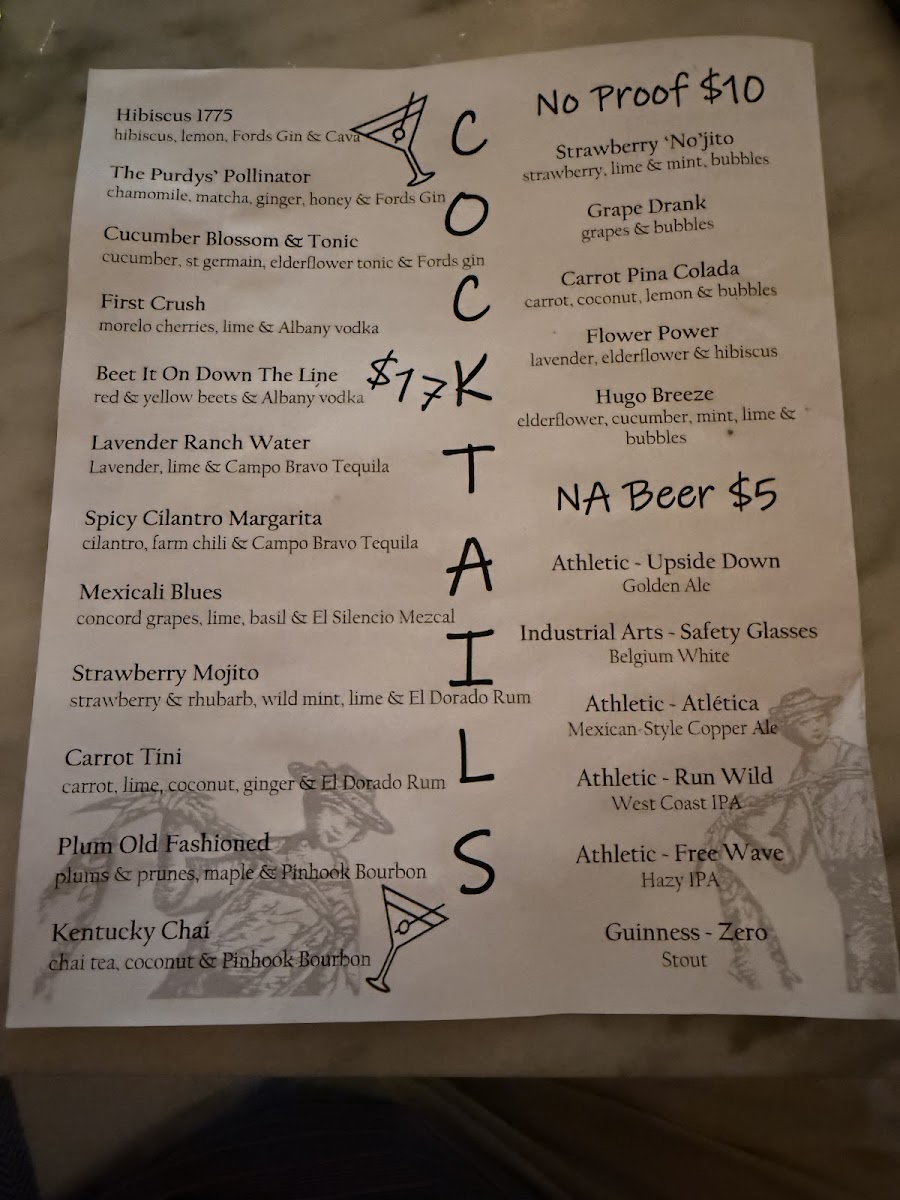 Hibiscus 1775
hibiscus, lemon, Fords Gin & Cava
The Purdys' Pollinator
chamomile, matcha, ginger, honey & Fords Gin
Cucumber Blossom & Tonic
cucumber, st germain, elderflower tonic & Fords gin
First Crush
morelo cherries, lime & Albany vodka
Beet It On Down The Line
red & yellow beets & Albany vodka
Lavender Ranch Water
Lavender, lime & Campo Bravo Tequila
Spicy Cilantro Margarita
cilantro, farm chili & Campo Bravo Tequila
Mexicali Blues
concord grapes, lime, basil & El Silencio Mezcal
Strawberry Mojito
strawberry & rhubarb, wild mint, lime & El Dorado Rum
Carrot Tini
carrot, lime, coconut, ginger & El Dorado Rum
Plum Old Fashioned
plums & prunes, maple & Pinhook Bourbon
Kentucky Chai
chai tea, coconut & Pinhook Bourbon
COCKTAILS
$17
No Proof $10
Strawberry 'No'jito
strawberry, lime & mint, bubbles
Grape Drank
grapes & bubbles
Carrot Pina Colada
carrot, coconut, lemon & bubbles
Flower Power
lavender, elderflower & hibiscus
Hugo Breeze
elderflower, cucumber, mint, lime &
bubbles
NA Beer $5
Athletic - Upside Down
Golden Ale
Industrial Arts - Safety Glasses
Belgium White
Athletic - Atlética
Mexican-Style Copper Ale
Athletic - Run Wild
West Coast IPA
Athletic - Free Wave
Hazy IPA
Guinness - Zero
Stout